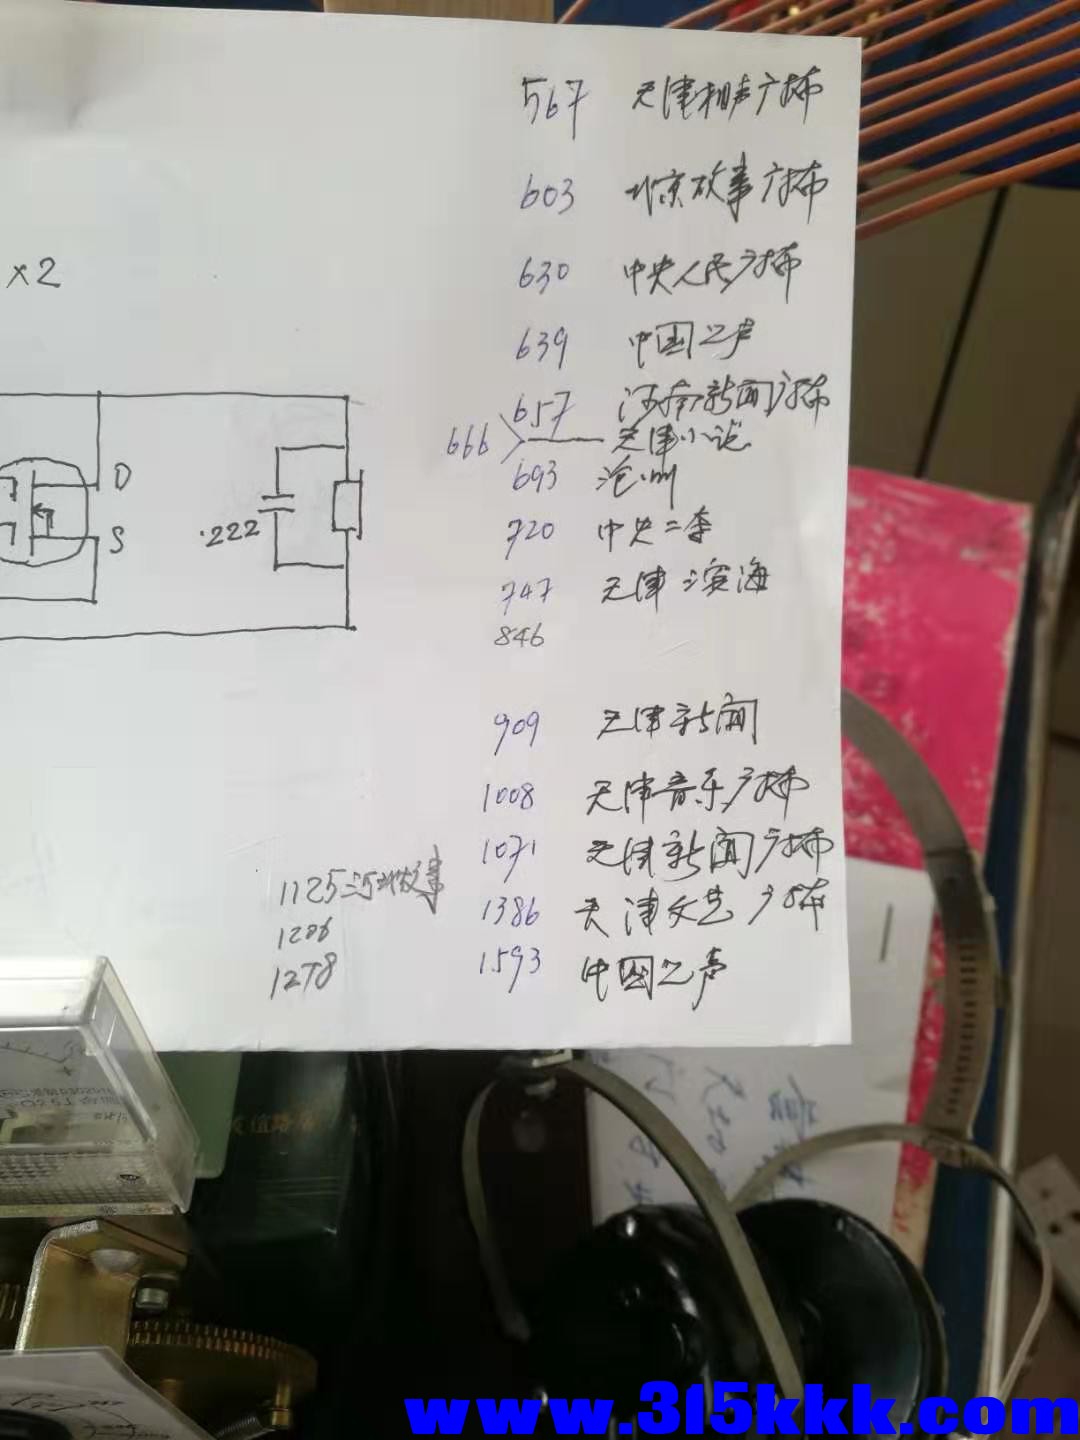 567 天津相声广播
603 北京故事广播
×2
630 中央人民广播
639 中国之声
657 河南新闻广播
666 天津小说
693 沧州
D
720 中央二套
.222
S
747 天津滨海
846
909 天津新闻
1008 天津音乐广播
1071 天津新闻广播
1125 河北故事
1386 天津文艺广播
1206
1593 中国之声
1278
www.315kkk.com